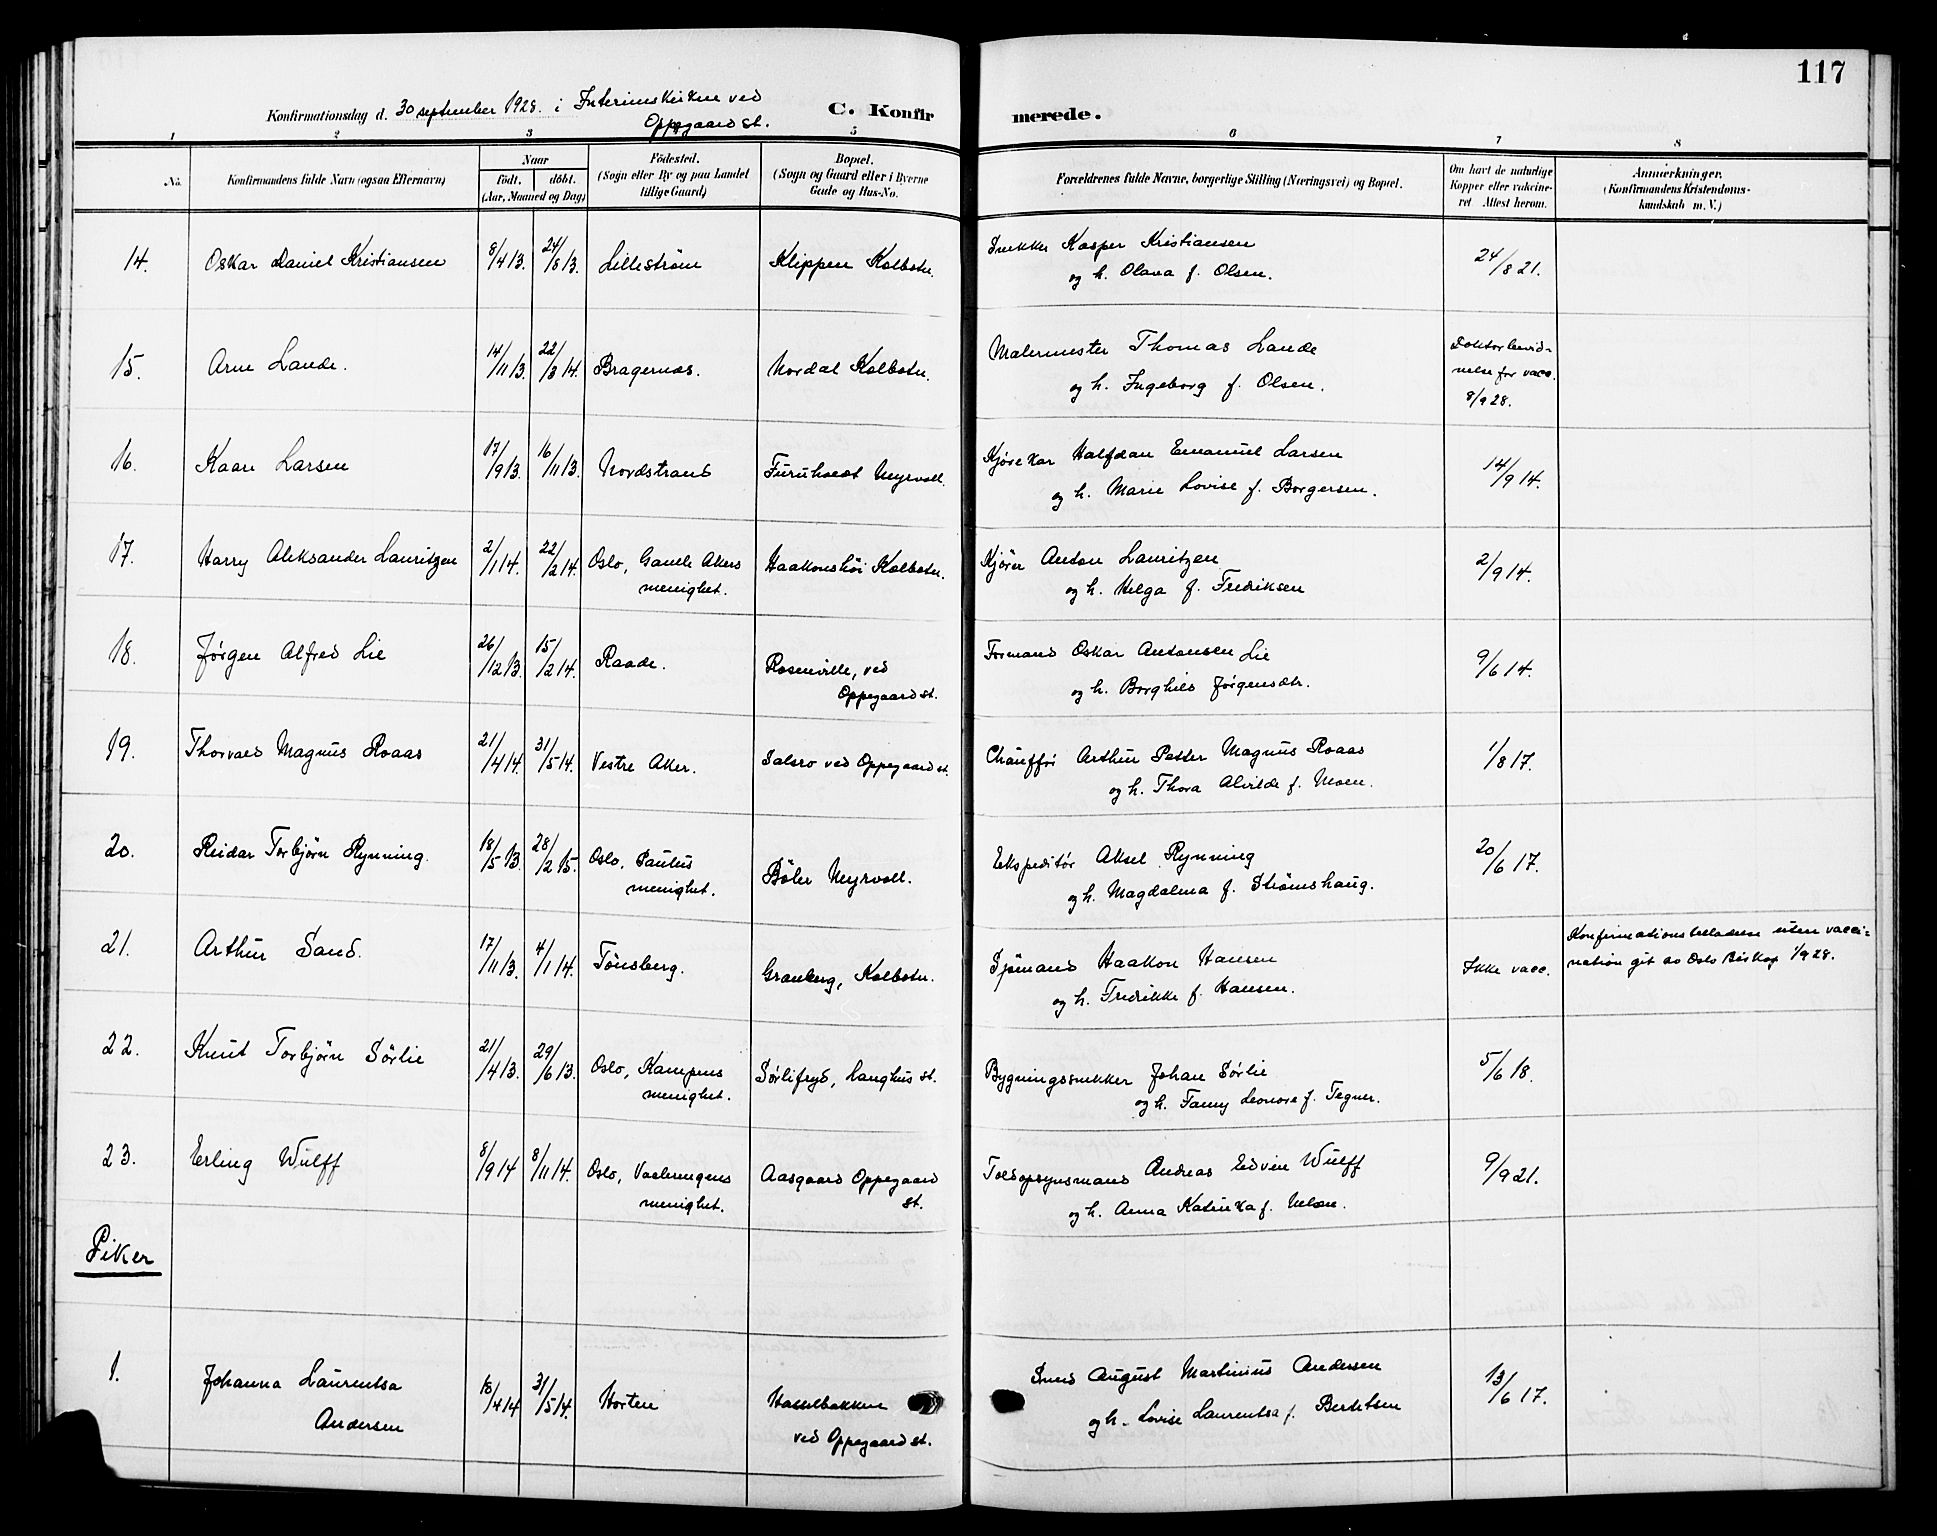 117
Konfirmationsdag d. 30 september 1928. i Interimskirken ved
Oppegaard st.
C. Konfirmerede.
1 2 3 5 6 7 8
No.
Konfirmandens fulde Navn (ogsaa Efternavn)
Naar
födt. döbt.
(Aar, Maaned og Dag)
Födested.
(Sogn eller By og paa Landet
tillige Gaard)
Bopæl.
(Sogn og Gaard eller i Byerne
Gade og Hus-No.
Forældrenes fulde Navne, borgerlige Stilling (Næringsvei) og Bopæl.
Om havt de naturlige
Kopper eller vakcine-
ret Attest herom.
Anmærkninger.
(Konfirmandens Kristendoms-
kundskab m. V.)
14. Oskar Daniel Kristiansen 8/4 13. 24/8 13. Lilleström Klippen Kolbotn. Snekker Kasper Kristiansen 24/8 21.
og h. Olava f. Olsen.
15. Arne Lande. 14/11 13. 22/3 14. Bragernes. Nordal Kolbotn. Malermester Thomas Lande Doktorbevid-
og h. Ingeborg f. Olsen. nelse for vacc.
8/9 28.
16. Kaare Larsen 17/9 13. 16/11 13. Nordstrand Furuholdt Myrvoll. Kjørekar Halfdan Emanuel Larsen 14/9 14.
og h. Marie Lovise f. Borgersen.
17. Harry Aleksander Lauritzen 2/1 14. 22/2 14. Oslo, Gamle Akers Haakonshöi Kolbotn. Kjører Anton Lauritzen 2/9 14.
menighet. og h. Helga f. Fredriksen
18. Jørgen Alfred Lie 26/12 13. 15/2 14. Raade. Rosenville, ved Formand Oskar Antonsen Lie 9/6 14.
Oppegaard st. og h. Borghild Jørgensdtr.
19. Thorvald Magnus Roaas 21/4 14. 31/5 14. Vestre Aker. Solero ved Oppegaard st. Chauffør Arthur Petter Magnus Roaas 1/8 17.
og h. Thora Alvilde f. Moen.
20. Reidar Torbjörn Rynning. 18/5 13. 28/2 15. Oslo, Paulus Böler Myrvoll. Ekspeditör Aksel Rynning 20/6 17.
menighet. og h. Magdalena f. Strömshaug.
21. Arthur Sand. 17/11 13. 4/1 14. Tönsberg. Granberg, Kolbotn. Sjömand Haakon Hansen Ikke vacc. Konfirmationstilladelse uten vacci-
og h. Fredrikke f. Hansen. nation git av Oslo Biskop 1/9 28.
22. Knut Torbjörn Sörlie 21/4 13. 29/6 13. Oslo, Kampens Sörlifryd, Hanghus st. Bygningssnekker Johan Sörlie 5/6 18.
menighet. og h. Fanny Leonore f. Tegner.
23. Erling Wulff 8/9 14 8/11 14. Oslo, Vaalerengens Aasgaard Oppegaard Toldopsynsmand Andreas Edvin Wulff 9/9 21.
menighet. st. og h. Anna Katinka f. Nelson.
Piker
1. Johanna Laurentsa 18/4 14 31/5 14. Horten Hasselbakken Smed August Martinius Andersen 13/6 17.
Andersen ved Oppegaard st. og h. Lovise Laurentsa f. Berntsen